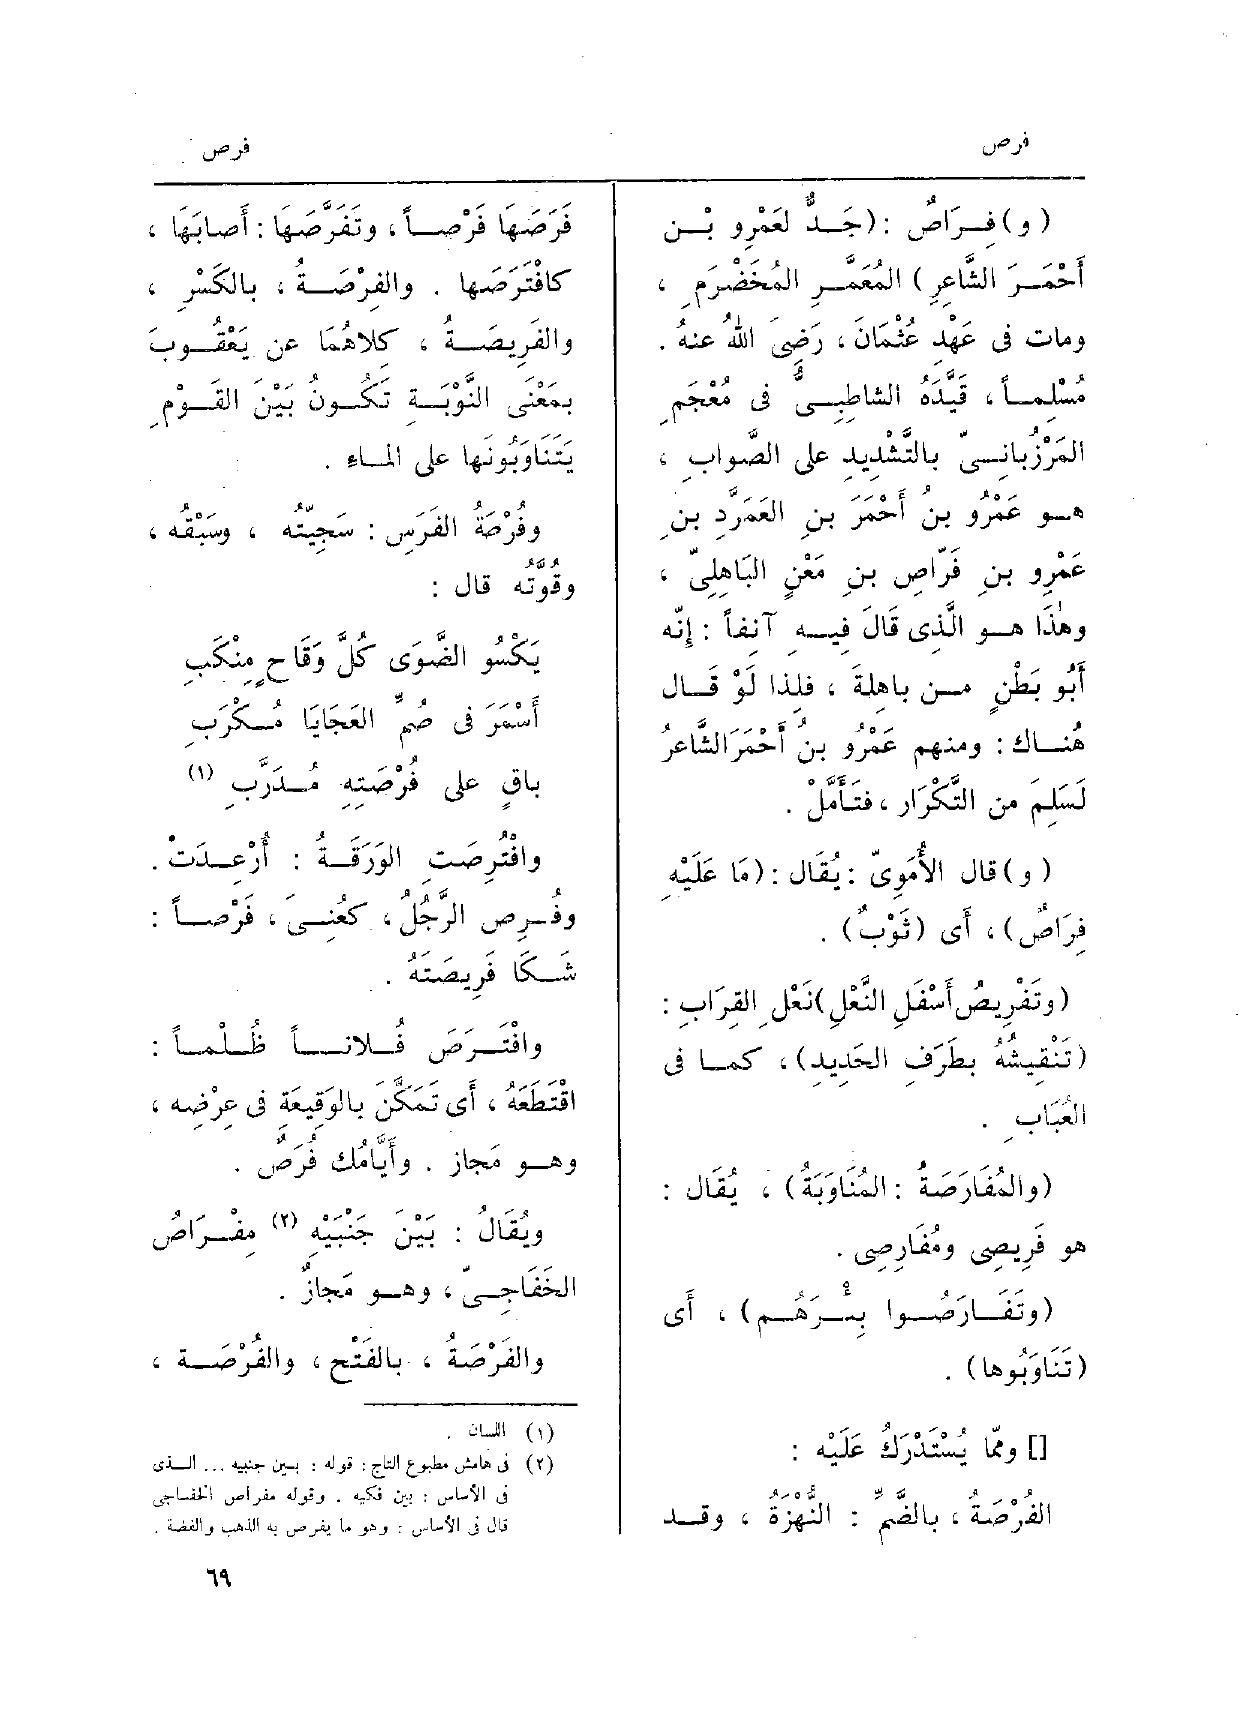 فرص
فرص
(و) فِراصٌ : (جَدٌّ لعَمْرِو بْن
أَحْمَرَ الشَّاعِرِ) المُعَمَّرِ المُخَضْرَمِ ،
ومات فى عَهْدِ عُثْمَانَ ، رَضِىَ اللهُ عنهُ .
مُسْلِماً ، قَيَّدَهُ الشاطِبِىُّ فى مُعْجَمِ
المَرْزُبانِىّ بالتَّشْدِيدِ على الصَّوابِ ،
هو عَمْرُو بنُ أَحْمَرَ بنِ العَمَرَّدِ بنِ
عَمْرِو بنِ فَرّاصِ بنِ مَعْنٍ البَاهِلِىّ ،
وهٰذَا هو الَّذِى قَالَ فِيهِ آنفاً : إِنّه
أَبُو بَطْنٍ من باهِلةَ ، فلِذا لَوْ قَال
هُناك : ومنهم عَمْرُو بنُ أَحْمَرَ الشَّاعرُ
لَسَلِمَ من التَّكْرَار ، فتَأَمَّلْ .
(و) قال الأُمَوِىّ : يُقَال : (مَا عَلَيْهِ
فِرَاصٌ) ، أَى (ثَوْبٌ) .
(وتَفْرِيصُ أَسْفَلِ النَّعْلِ) نَعْلِ القِرَابِ :
(تَنْقِيشُهُ بطَرَفِ الحَدِيدِ) ، كما فى
العُبَابِ .
(والمُفَارَصَةُ : المُنَاوَبَةُ) ، يُقَال :
هو فَرِيصِى ومُفَارِصِى .
(وتَفَارَصُوا بِئْرَهُم) ، أَى
(تَنَاوَبُوها) .
[] وممّا يُسْتَدْرَكُ عَلَيْه :
الفُرْصَةُ ، بالضَّمِّ : النُّهْزَةُ ، وقد
فَرَصَهَا فَرْصاً ، وتَفَرَّصَهَا : أَصابَهَا ،
كافْتَرَصَها . والفِرْصَةُ ، بالكَسْرِ ،
والفَرِيصَةُ ، كلاهُمَا عن يَعْقُوبَ
بمَعْنَى النَّوْبَةِ تَكُونُ بَيْنَ القَوْمِ
يَتَنَاوَبُونَها على الماء .
وفُرْصَةُ الفَرَسِ : سَجِيّتُه ، وسَبْقُه ،
وقُوَّتُه قال :
يَكْسُو الضُّوَى كُلَّ وَقَاحٍ مِنْكَبِ
أَسْمَرَ فى صُمِّ العَجَايَا مُكْرَبِ
باقٍ على فُرْصَتِهِ مُدَرَّبِ (١)
وافْتُرِصَتِ الوَرَقَةُ : أُرْعِدَتْ .
وفُرِصَ الرَّجُلُ ، كعُنِىَ ، فَرْصاً :
شَكَا فَرِيصَتَهُ .
وافْتَرَصَ فُلاناً ظُلْماً :
اقْتَطَعَهُ ، أَى تَمَكَّنَ بالوَقِيعَةِ فى عِرْضِه ،
وهو مَجاز . وأَيَّامُك فُرَصٌ .
ويُقَالُ : بَيْنَ جَنْبَيْهِ (٢) مِفْرَاصُ
الخَفَاجِىّ ، وهو مَجازٌ .
والفَرْصَةُ ، بالفَتْحِ ، والفُرْصَة ،
(١) اللسان .
(٢) فى هامش مطبوع التاج : قوله : بين جنبيه ... الذى
فى الأساس : بين فكيه . وقوله مفراص الخفاجى
قال فى الأساس : وهو ما يفرص به الذهب والفضة .
٦٩